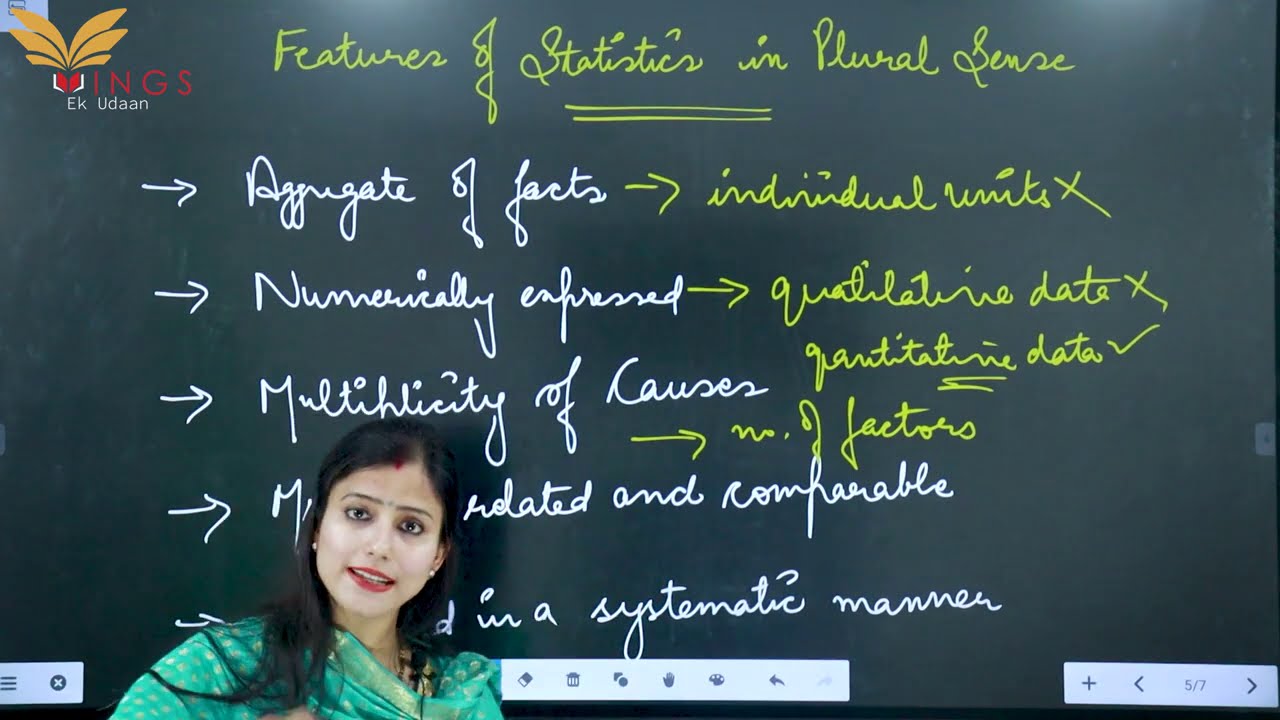 WINGS
Ek Udaan
Features of Statistics in Plural Sense
→ Aggregate of facts → individual units ×
→ Numerically expressed → qualitative date ×
quantitative data ✓
→ Multiplicity of Causes
→ no. of factors
→ related and comparable
→ in a systematic manner
5/7